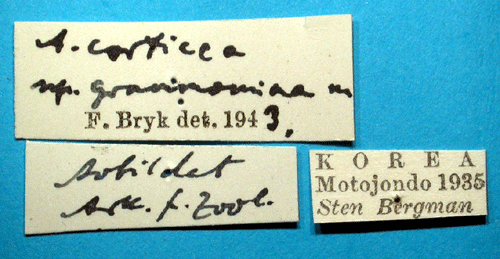 A. corticea
ssp. graminomina m
F. Bryk det. 1943.
Avbildat
Ark. f. Zool.
KOREA
Motojondo 1935
Sten Bergman